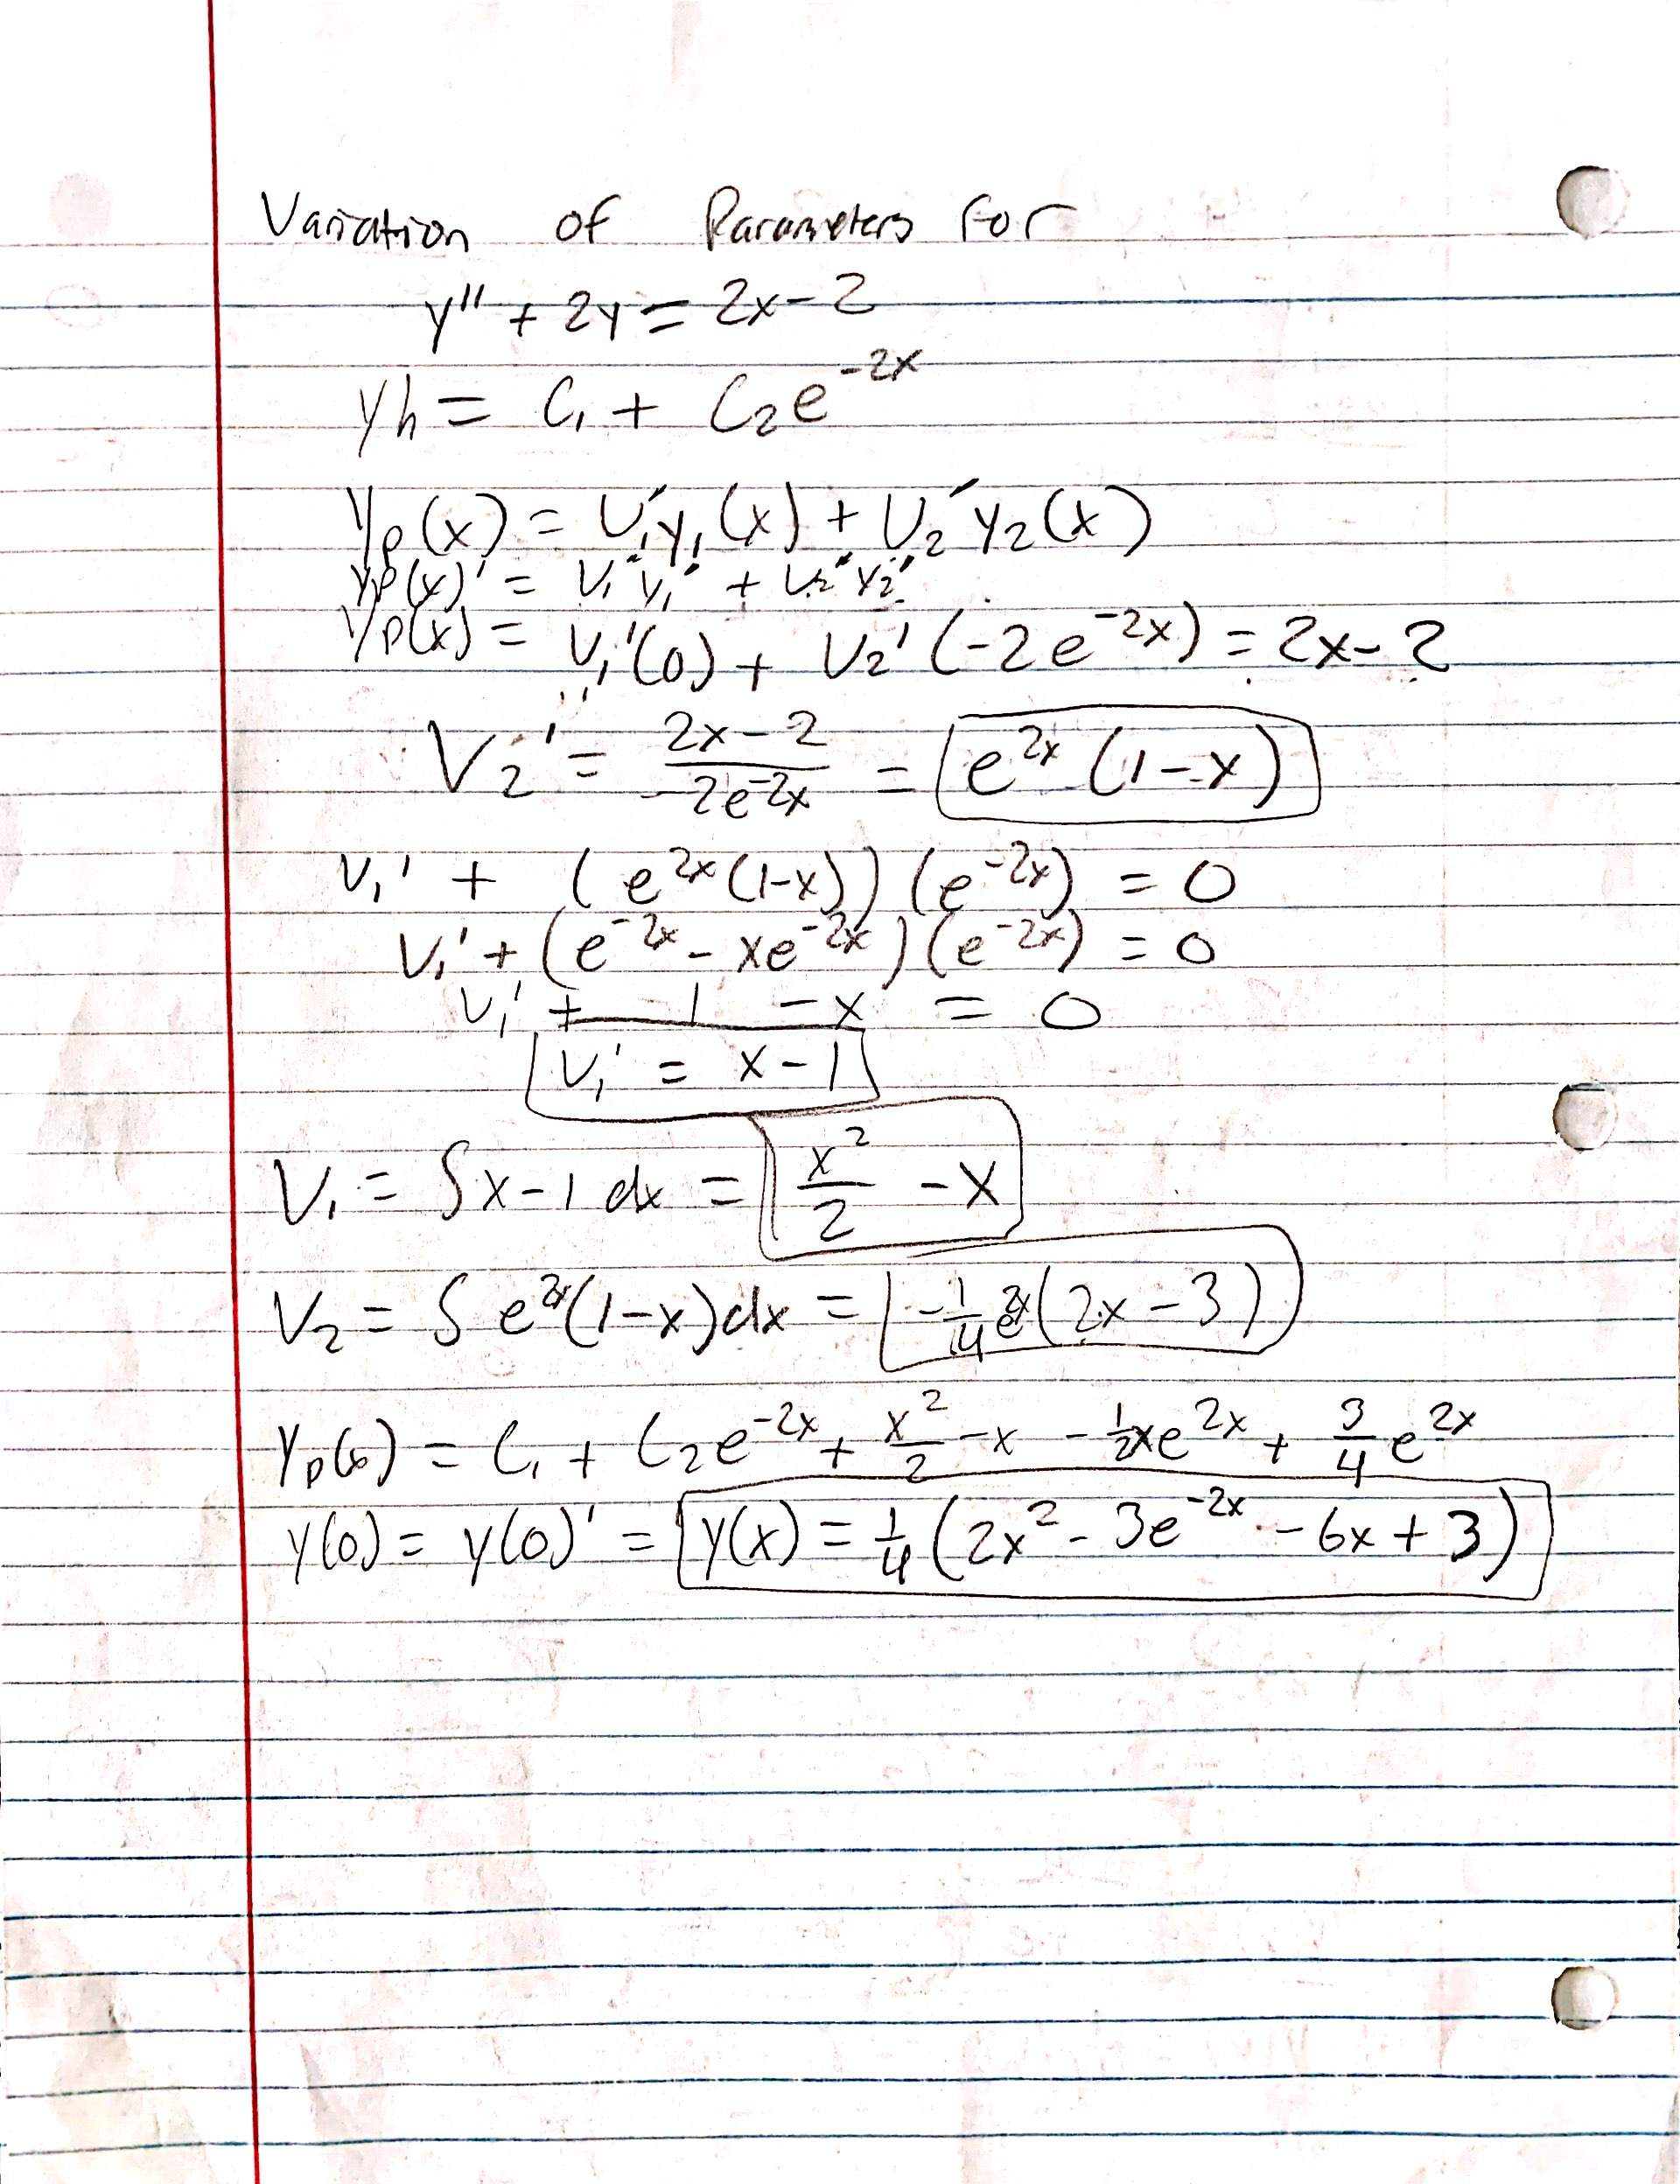 Variation of Parameters For
y'' + 2y = 2x - 2
yh = C₁ + C₂e⁻²ˣ
Yp(x) = U₁'y₁(x) + U₂'y₂(x)
Yp(x)' = V₁'y₁' + V₂'y₂'
Yp(x) = V₁'(0) + V₂'(-2e⁻²ˣ) = 2x - 2
V₂' = (2x - 2)/(-2e⁻²ˣ) = e²ˣ(1-x)
V₁' + (e²ˣ(1-x))(e⁻²ˣ) = 0
V₁' + (e⁻²ˣ - xe⁻²ˣ)(e⁻²ˣ) = 0
V₁' + 1 - x = 0
V₁' = x - 1
V₁ = ∫x-1 dx = x²/2 - x
V₂ = ∫e²ˣ(1-x)dx = -1/4e²ˣ(2x-3)
Yp(x) = C₁ + C₂e⁻²ˣ + x²/2 - x - 1/2xe²ˣ + 3/4e²ˣ
y(0) = y(0)' = y(x) = 1/4(2x² - 3e⁻²ˣ - 6x + 3)